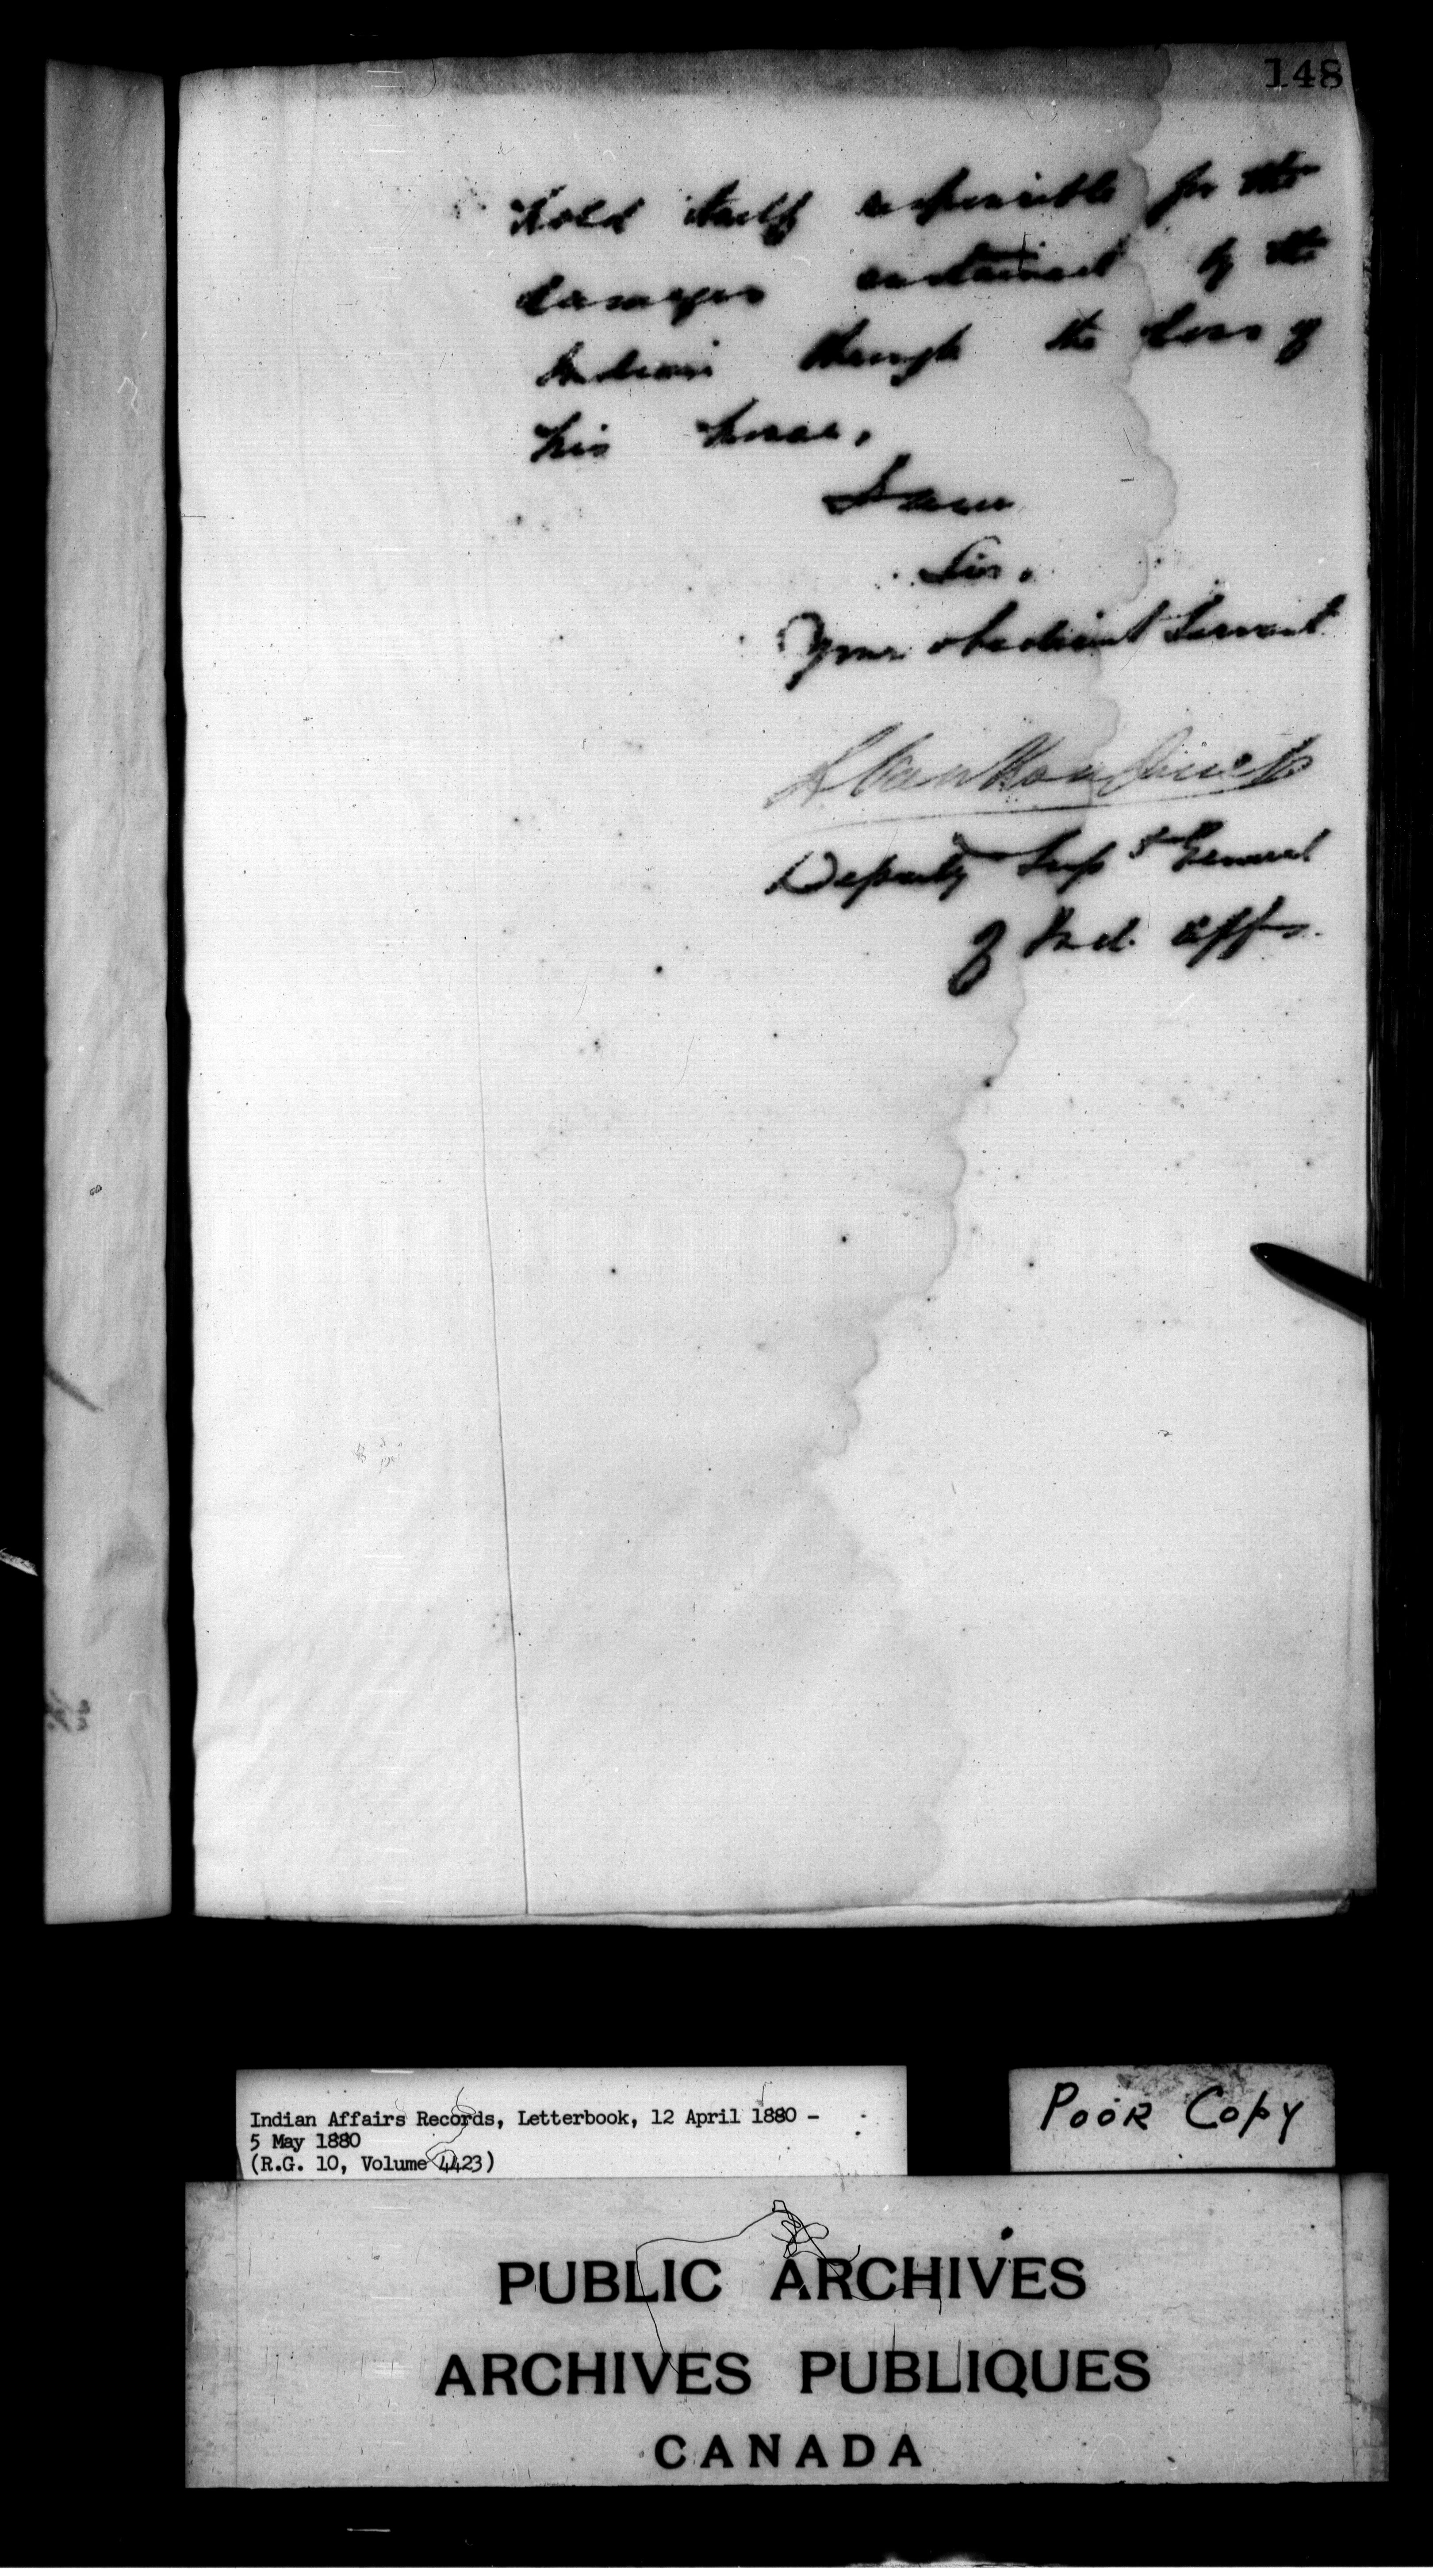 148
hold itself responsible for the
damages sustained by the
Indian through the loss of
his horse,
I am
Sir,
Your obedient Servant
L VanKoughnet
Deputy Supt General
of Ind. Affrs.
Indian Affairs Records, Letterbook, 12 April 1880 -
5 May 1880
(R.G. 10, Volume 4423)
POOR COPY
PUBLIC ARCHIVES
ARCHIVES PUBLIQUES
CANADA